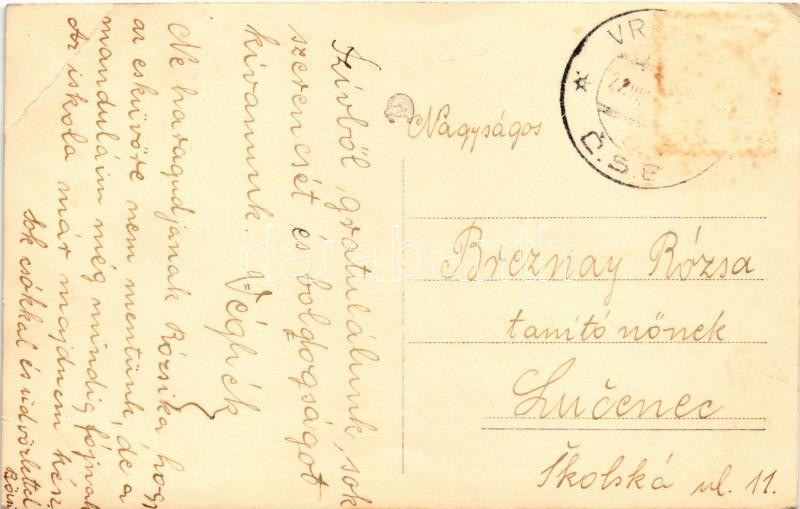 Szívből gratulálunk, sok
szerencsét és boldogságot
kívánunk:
Véghék
Ne haragudjanak Rózsika hogy
az esküvőre nem mentünk, de a
manduláim még mindig fájnak
Az iskola már majdnem kész,
Sok csókkal és üdvözlettel
VR
Č.S.R
Nagyságos
Breznay Rózsa
tanító nőnek
Lučenec
Školská ul. 11.
darabanth